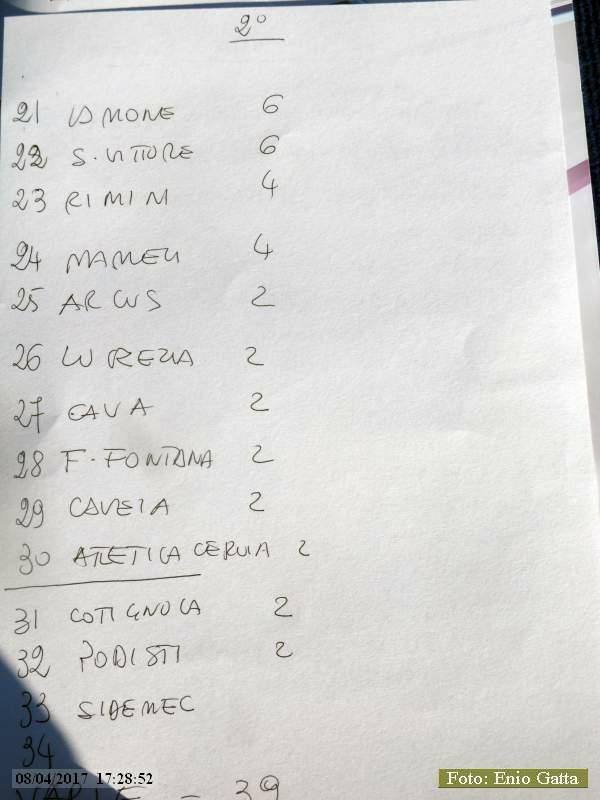 2°
21 LAMONE 6
22 S. VITTORE 6
23 RIMINI 4
24 MAMELI 4
25 ARCUS 2
26 LUREZIA 2
27 CAVA 2
28 F. FONTANA 2
29 CAVEIA 2
30 ATLETICA CERVIA 2
31 COTIGNOLA 2
32 PODISTI 2
33 SIDEMEC
34
VARIE = 39
08/04/2017 17:28:52
Foto: Enio Gatta